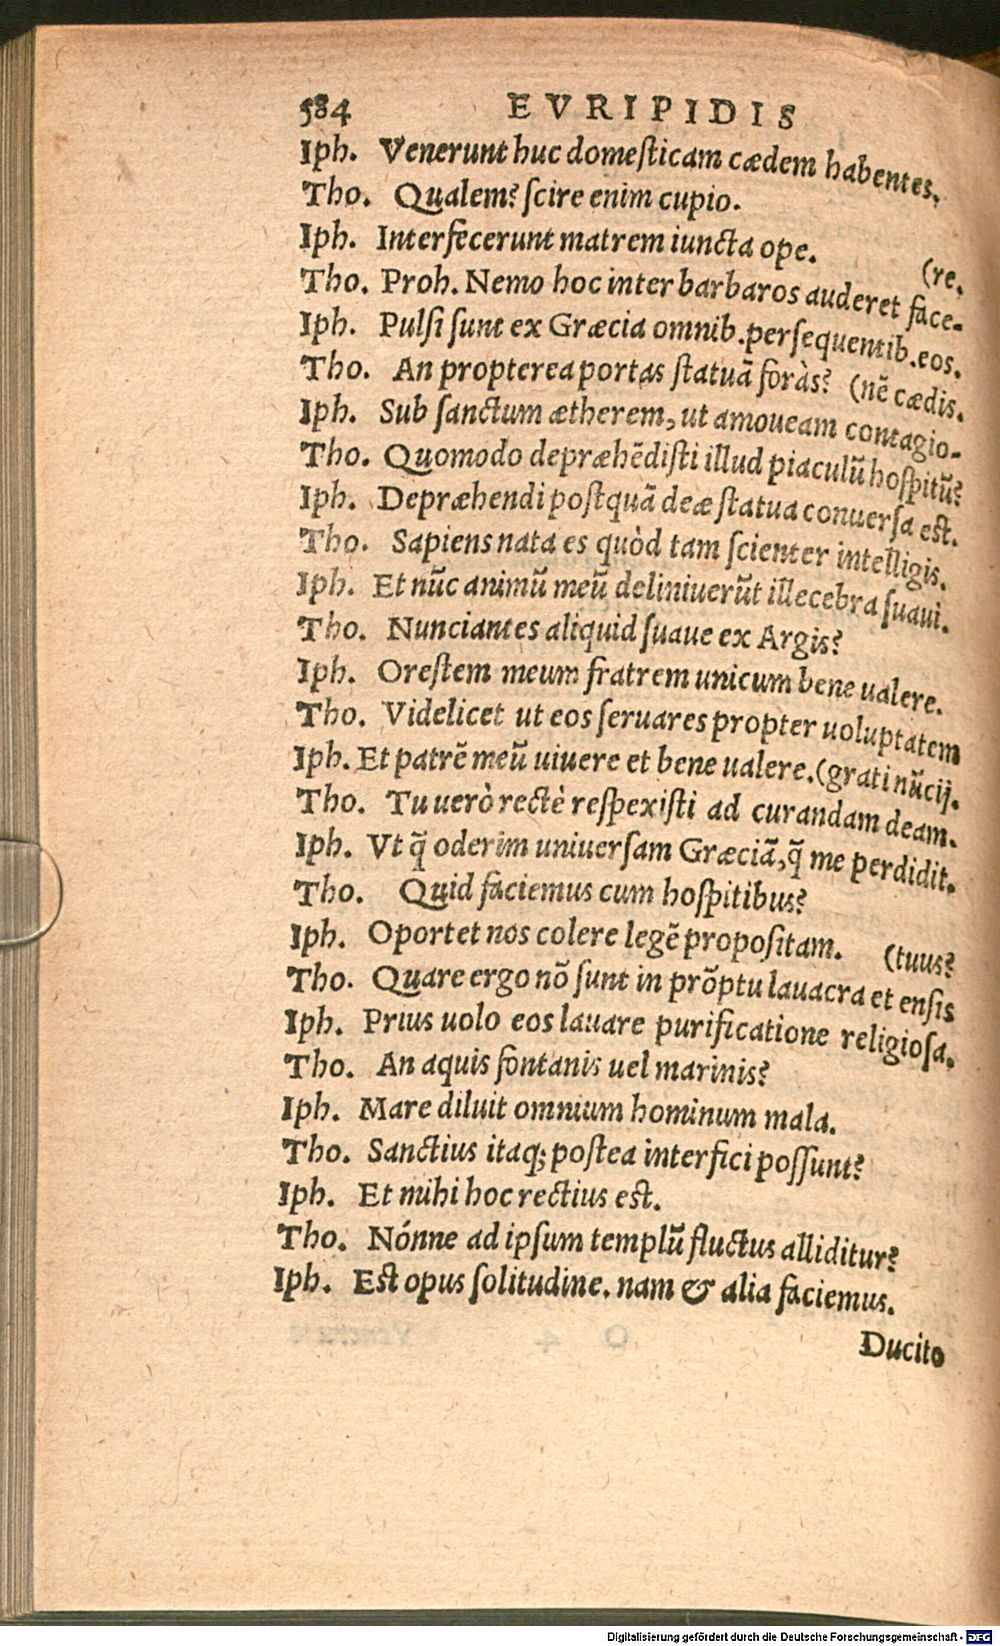 584 EVRIPIDIS
Iph. Venerunt huc domeſticam cædem habentes.
Tho. Qualem? ſcire enim cupio.
Iph. Interfecerunt matrem iuncta ope.
(re.
Tho. Proh. Nemo hoc inter barbaros auderet face-
Iph. Pulſi ſunt ex Græcia omnib. perſequentib. eos.
Tho. An propterea portas ſtatuã foràs? (nẽ cædis.
Iph. Sub ſanctum ætherem, ut amoueam contagio-
Tho. Quomodo depræhẽdiſti illud piaculũ hoſpitũ?
Iph. Depræhendi poſtquã deæ ſtatua conuerſa eſt.
Tho. Sapiens nata es quòd tam ſcienter intelligis.
Iph. Et nũc animũ meũ deliniuerũt illecebra ſuaui.
Tho. Nunciantes aliquid ſuaue ex Argis?
Iph. Oreſtem meum fratrem unicum bene ualere.
Tho. Videlicet ut eos ſeruares propter uoluptatem
Iph. Et patrẽ meũ uiuere et bene ualere. (grati nũcij.
Tho. Tu uerò rectè reſpexiſti ad curandam deam.
Iph. Vt q̃ oderim uniuerſam Græciã, q̃ me perdidit.
Tho. Quid faciemus cum hoſpitibus?
Iph. Oportet nos colere legẽ propoſitam. (tuus?
Tho. Quare ergo nõ ſunt in prõptu lauacra et enſis
Iph. Prius uolo eos lauare purificatione religioſa.
Tho. An aquis fontanis uel marinis?
Iph. Mare diluit omnium hominum mala.
Tho. Sanctius itaq; poſtea interfici poſſunt?
Iph. Et mihi hoc rectius eſt.
Tho. Nónne ad ipſum templũ fluctus alliditur?
Iph. Eſt opus ſolitudine. nam & alia faciemus.
Ducito
Digitalisierung gefördert durch die Deutsche Forschungsgemeinschaft - DFG